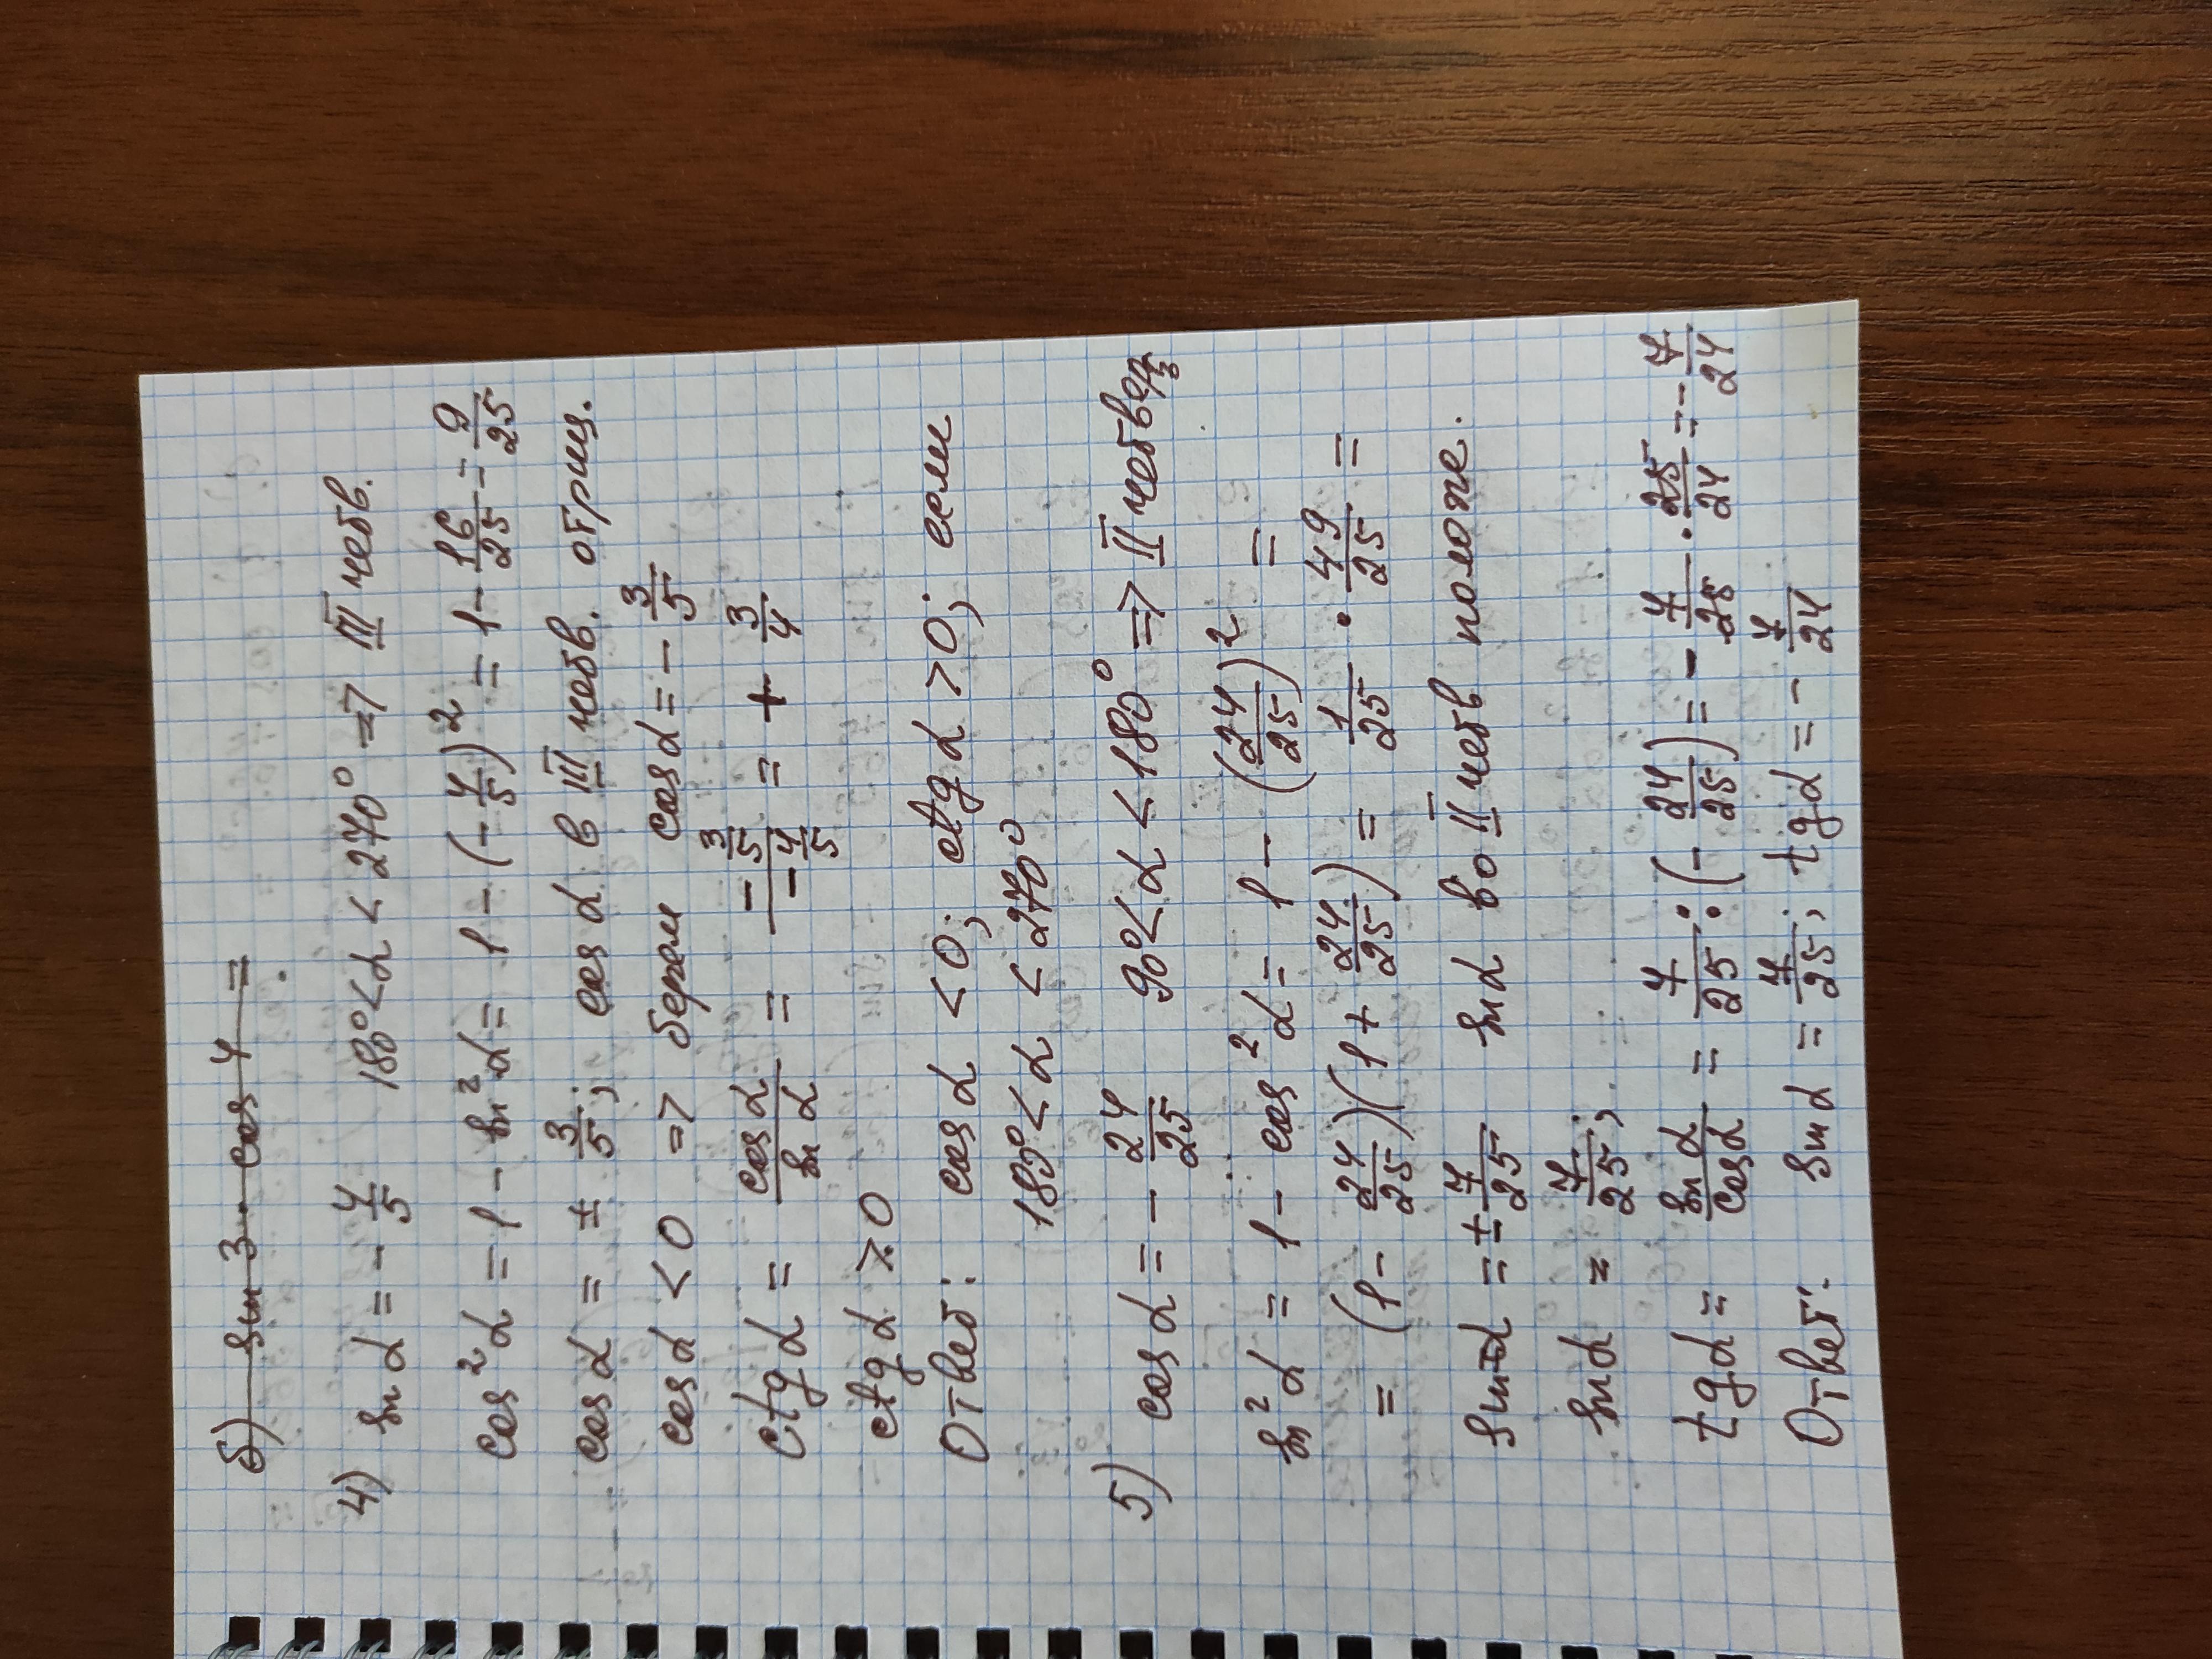 б) sin 3 · cos 4 =
4) sin α = - 4/5 180° < α < 270° => III четв.
cos² α = 1 - sin² α = 1 - (- 4/5)² = 1 - 16/25 = 9/25
cos α = ± 3/5; cos α в III четв. отриц.
cos α < 0 => берем cos α = - 3/5
ctg α = cos α / sin α = (- 3/5) / (- 4/5) = + 3/4
ctg α > 0
Ответ: cos α < 0; ctg α > 0; если
180° < α < 270°
5) cos α = - 24/25 90° < α < 180° => II четвер
sin² α = 1 - cos² α = 1 - (24/25)² =
= (1 - 24/25)(1 + 24/25) = 1/25 · 49/25 =
sin α = ± 7/25 sin α во II четв полож.
sin α = 7/25;
tg α = sin α / cos α = 7/25 : (- 24/25) = - 7/25 · 25/24 = - 7/24
Ответ: sin α = 7/25; tg α = - 7/24